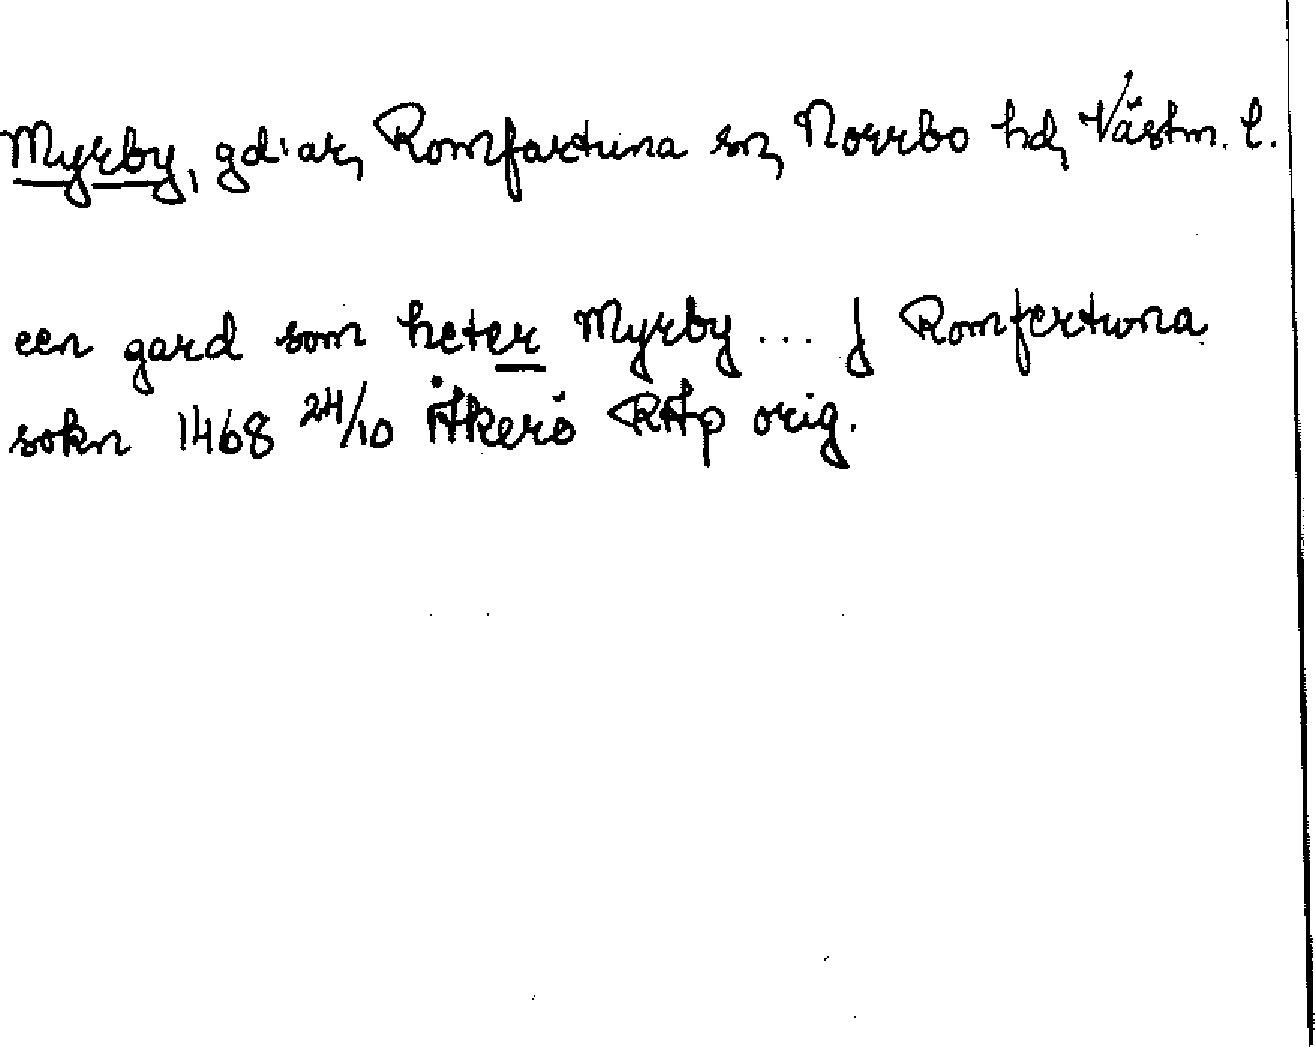 Myrby, gd:ar, Romfartuna sn, Norrbo hd, Västm. l.
een gard som heter Myrby ... j Romfertwna
sokn 1468 24/10 Åkerö RAp orig.